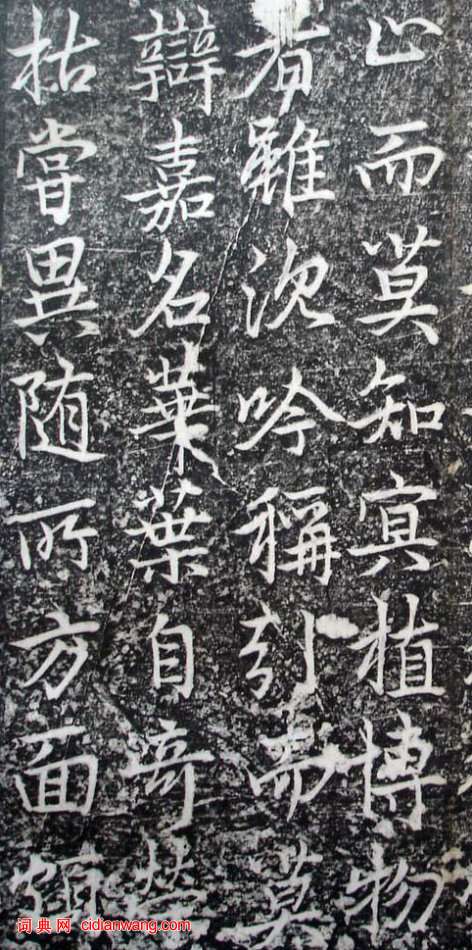 止而莫知冥植博物
者雖沉吟稱引而莫
辯嘉名華葉自奇榮
枯嘗異随所方面頗
词典网 cidianwang.com